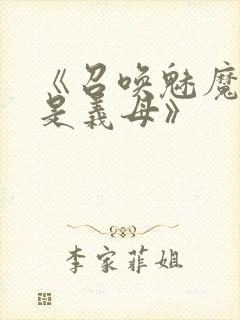 《召唤魅魔
是义母》
李家菲姐